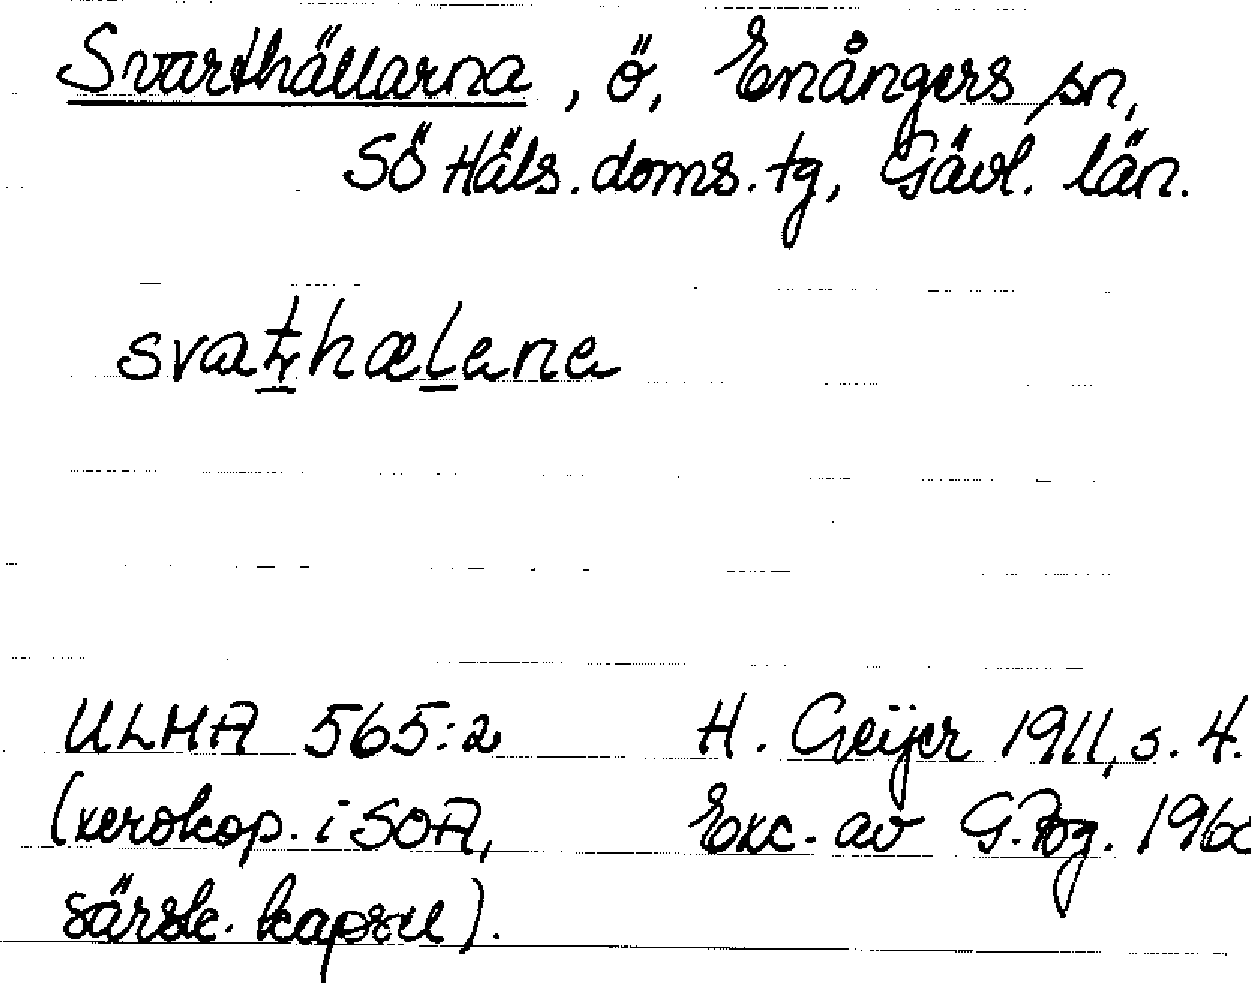 Svarthällarna, ö, Enångers sn,
SÖ Häls. doms. tg, Gävl. län.
svaʈhælana
ULMA 565:2
(xerokop. i SOA,
särsk. kapsel).
H. Geijer 1911, s. 4.
Exc. av